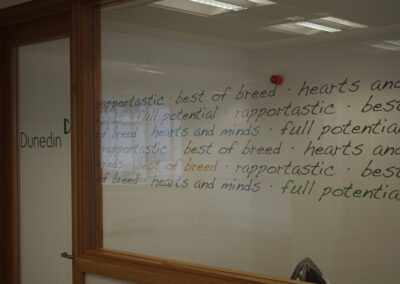 rapportastic · best of breed · hearts and
minds · full potential · rapportastic best
of breed · hearts and minds · full potential
rapportastic · best of breed · hearts and
minds · best of breed · rapportastic · best
of breed · hearts and minds · full potential
Dunedin